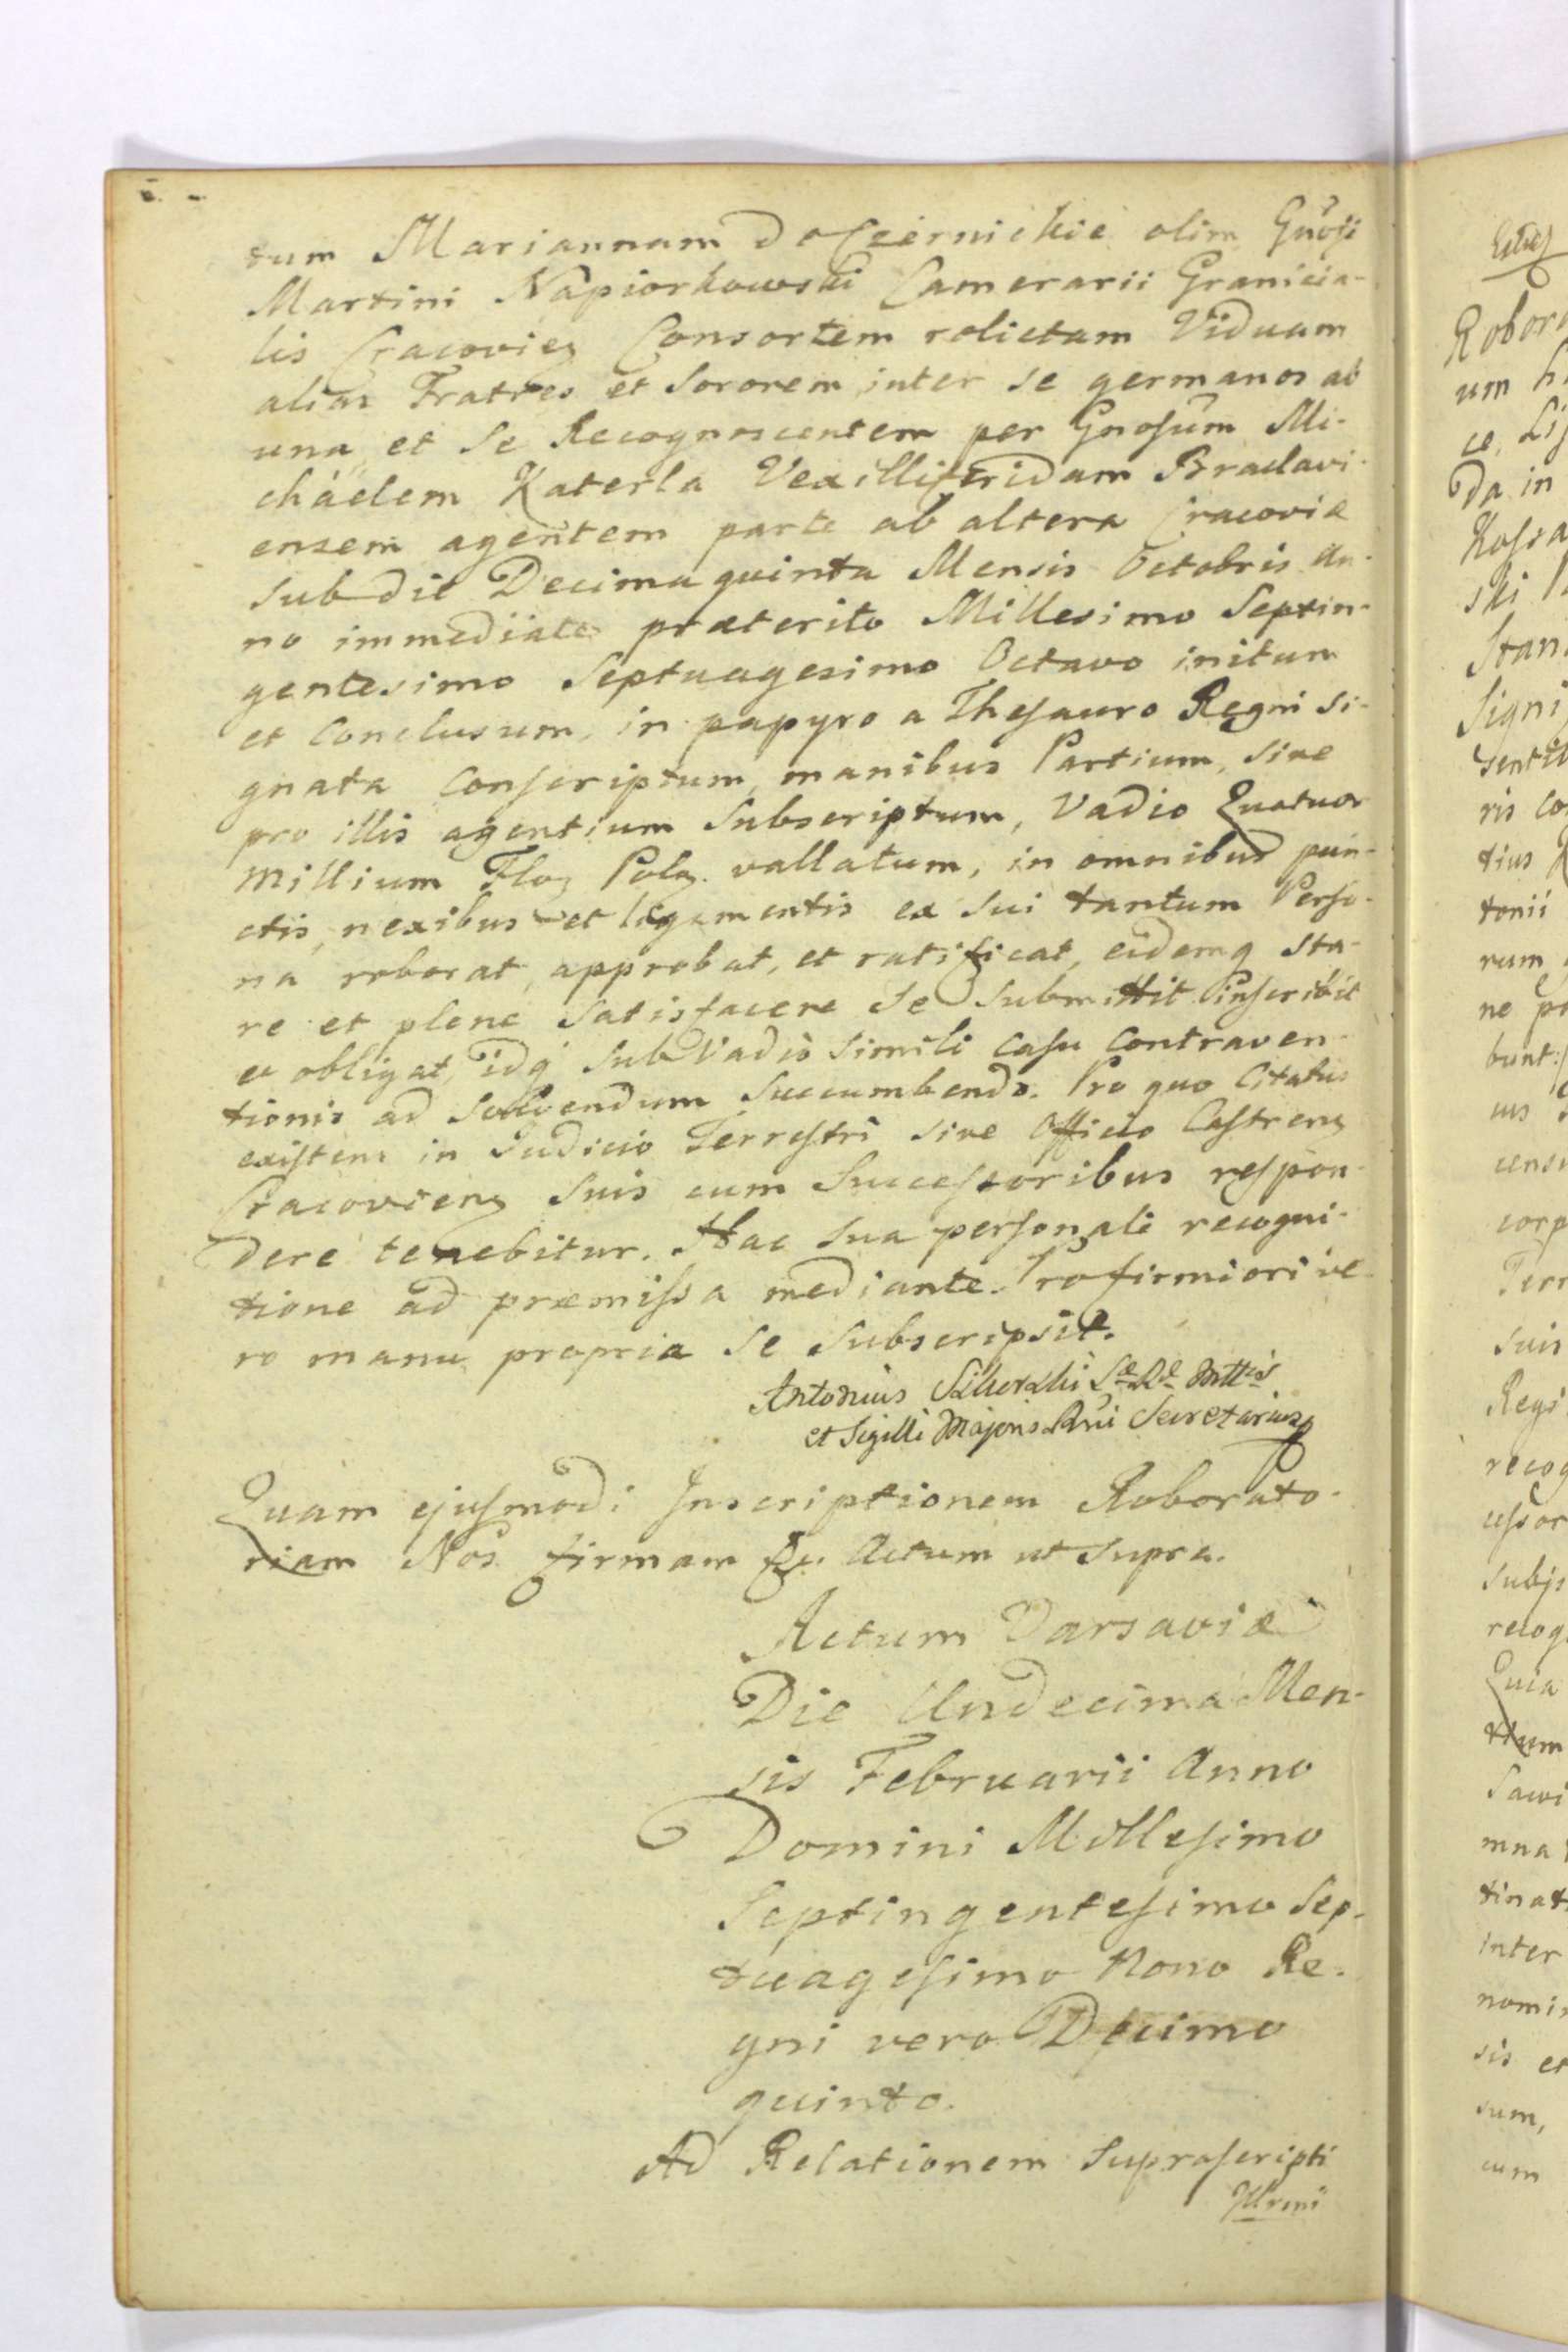 tum Mariannam de Czernickie olim Gnosi
Martini Napiorkowski Camerarii Granicia-
lis Cracovien Consortem relictam Viduam
alias Fratres et Sororem inter se germanos ab
una, et se Recognoscentem per Gnosum Mi-
chaelem Katerla Vexilliferidam Braclavi-
ensem agentem parte ab altera Cracoviæ
sub die Decima quinta Mensis Octobris An-
no immediate præterito Millesimo Septin-
gentesimo Septuagesimo Octavo initum
et Conclusum, in papyro a Thesauro Regni si-
gnata Conscriptum, manibus Partium, sive
pro illis agentium Subscriptum, Vadio Quatuor
Millium Flor Pol. vallatum, in omnibus pun-
ctis, nexibus et ligamentis ex sui tantum Perso-
na roborat, approbat, et ratificat, eidemq sta-
re et plene satisfacere se submittit inscribit
et obligat, idq sub Vadio simili casu Contraven-
tionis ad solvendum succumbendo. Pro quo Citatus
existens in Judicio Terrestri sive Officio Castren
Cracovien suis cum Successoribus respon-
dere tenebitur. Hac sua personali recogni-
tione ad præmissa mediante. Pro firmiori ve-
ro manu propria se subscripsit.
Antonius
et Sigilli Majoris Rni Secretarius
Quam ejusmodi Inscriptionem Roborato-
riam Nos firmam &c. Actum ut supra.
Actum Varsaviæ
Die Undecima Men-
sis Februarii Anno
Domini Millesimo
Septingentesimo Sep-
tuagesimo Nono Re-
gni vero Decimo
quinto.
Ad Relationem Suprascripti
Robor
um
da in
ski
Stan
Signi
ris
tius
tonii
rum
ne
bunt
corp
Terr
suis
Regi
recog
cessor
subj
recog
Quia
tinat
inter
nomi
sis et
sum,
cum